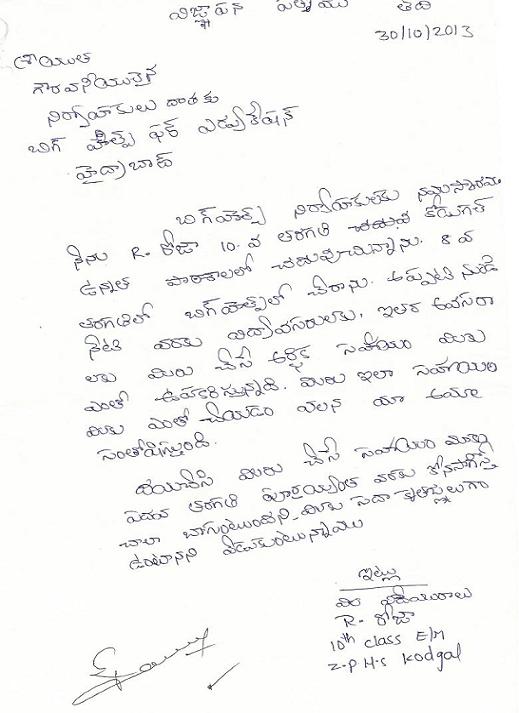 విజ్ఞాపన పత్రము తేది
30/10/2013
శ్రీయుత
గౌరవనీయులైన
నిర్వాహకులు దాతకు
బిగ్ హెల్ప్ ఫర్ ఎడ్యుకేషన్
హైద్రాబాద్
బిగ్ హెల్ప్ నిర్వాహకులకు నమస్కారము
నేను R. రోజా 10. వ తరగతి చదువు కోడుగల్
ఉన్నత పాఠశాలలో చదువుచున్నాను. 8 వ
తరగతిలో బిగ్ హెల్ప్ లో చేరాను. అప్పటి నుండి
నేటి వరకు విద్యావసరులకు, ఇతర అవసరా
లకు మీరు చేసే ఆర్థిక సహాయం మాకు
ఎంతో ఉపకరిస్తున్నది. మీరు ఇలా సహాయం
మాకు ఎంతో చేయడం వలన మా
సంతోషిస్తుంది.
దయచేసి మీరు చేసే సహాయం మాకు
పదవ తరగతి పూర్తయ్యేంత వరకు కొనసాగిస్తే
చాలా బాగుంటుందని మీకు సదా కృతజ్ఞులుగా
ఉంటానని వేడుకుంటున్నాము
ఇట్లు
మీ విధేయురాలు
R. రోజా
10th class E/M
Z.P.H.S Kodgal